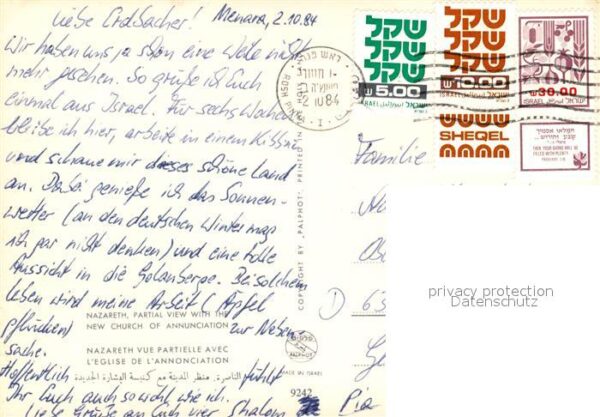 Liebe Erdbacher! Menara, 2.10.84
Wir haben uns ja schon eine Weile nicht
mehr gesehen. So grüße ich Euch
einmal aus Israel. Für sechs Wochen
bleibe ich hier, arbeite in einem Kibbuz
und schaue mir dieses schöne Land
an. Dabei genieße ich das Sonnen-
wetter (an den deutschen Winter mag
ich gar nicht denken) und eine tolle
Aussicht in die Golanberge. Bei solchem
Leben wird meine Arbeit (Äpfel
pflücken) zur Neben-
sache.
Hoffentlich fühlt
Ihr Euch auch so wohl wie ich.
Liebe Grüße an Euch vier Shalom
Pia
NAZARETH, PARTIAL VIEW WITH THE
NEW CHURCH OF ANNUNCIATION
NAZARETH VUE PARTIELLE AVEC
L'EGLISE DE L'ANNONCIATION
الناصرة، منظر المدينة مع كنيسة البشارة الجديدة
COPYRIGHT BY "PALPHOT" PRINTED IN
PALPHOT
MADE IN ISRAEL
9242
Familie
D 63
שקל
שקל
שקל
5.00
ISRAEL ישראל
שקל
שקל
שקל
10.00
ISRAEL ישראל
SHEQEL
30.00
ISRAEL ישראל
ROSH PINNA
2 10 84
privacy protection
Datenschutz